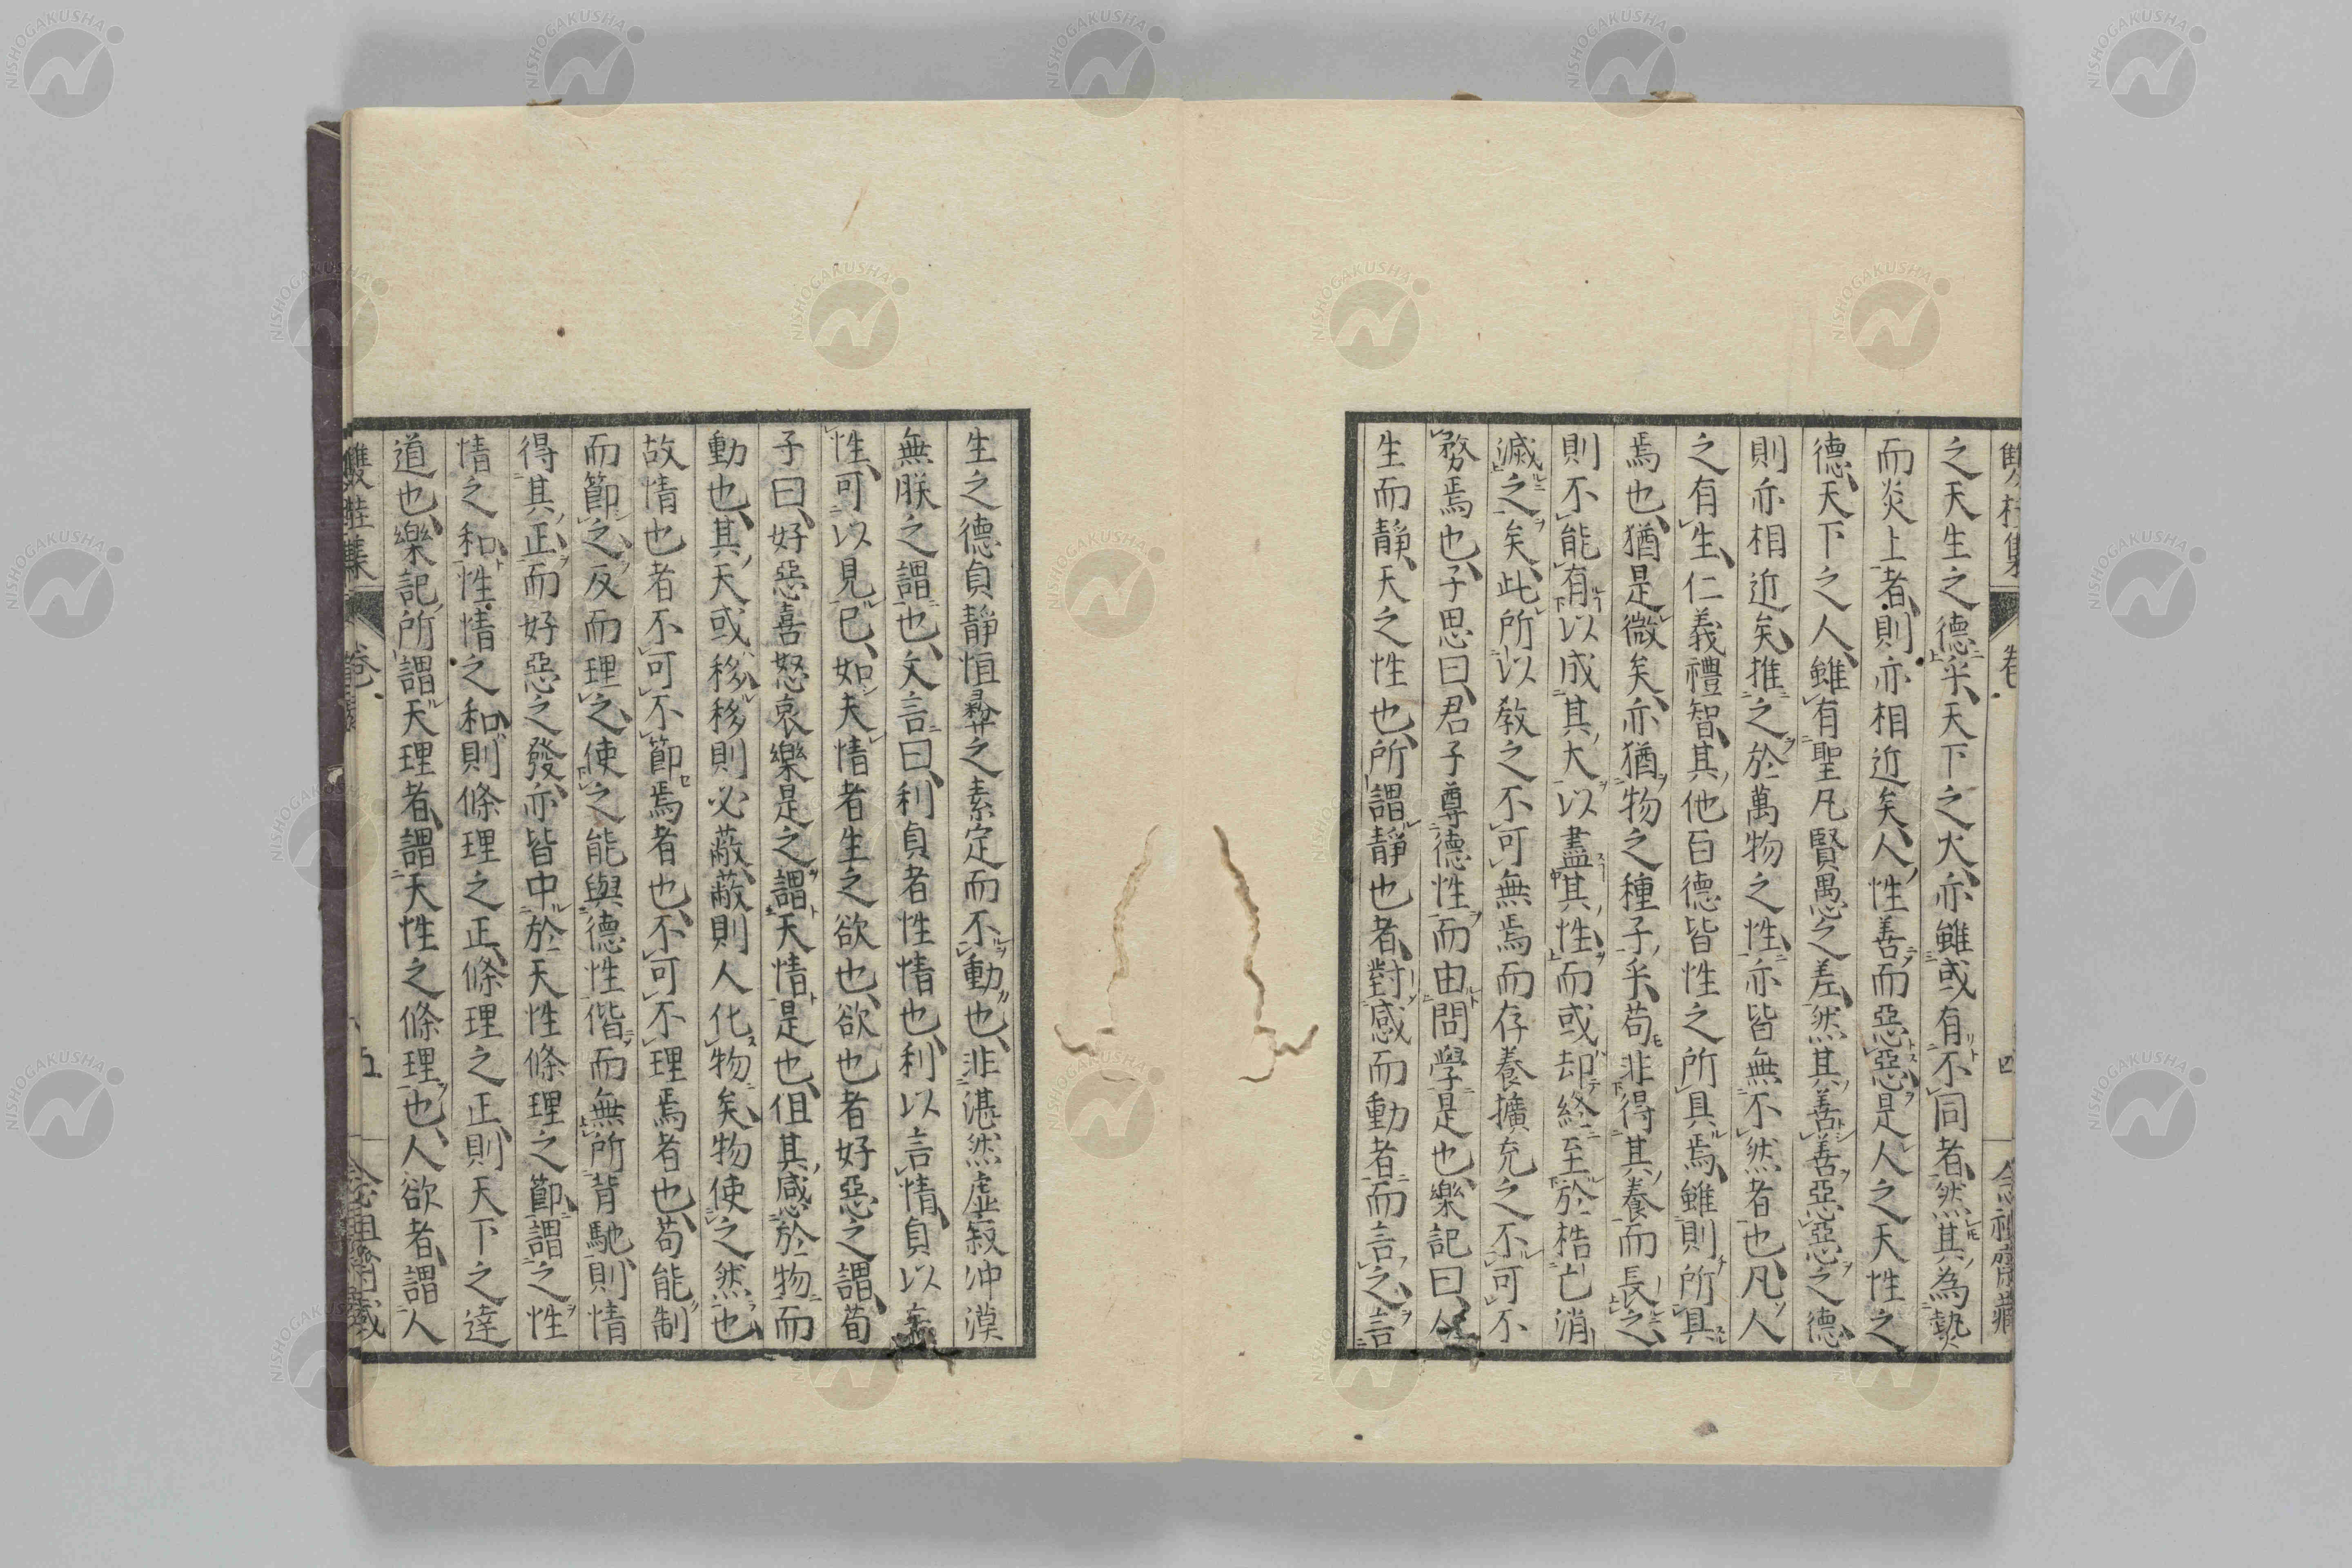 之天生之德乎天下之火亦雖或有不同者然其為熱
而炎上者則亦相近矣人性善而惡惡是人之天性之
德天下之人雖有聖凡賢愚之差然其善善惡惡之德
則亦相近矣推之於萬物之性亦皆無不然者也凡人
之有生仁義禮智其他百德皆性之所具焉雖則所具
焉也猶是微矣亦猶物之種子乎苟非得其養而長之
則不能有以成其大以盡其性而或却終至於梏亡消
滅之矣此所以教之不可無焉而存養擴充之不可不
務焉也子思曰君子尊德性而由問學是也樂記曰人
生而靜天之性也所謂靜也者對感而動者而言之言
生之德貞靜恒彛之素定而不動也非湛然虛寂冲漠
無朕之謂也文言曰利貞者性情也利以言情貞以言
性可以見已如夫情者生之欲也欲也者好惡之謂荀
子曰好惡喜怒哀樂是之謂天情是也但其感於物而
動也其天或移移則必蔽蔽則人化物矣物使之然也
故情也者不可不節焉者也不可不理焉者也苟能制
而節之反而理之使之能與德性偕而無所背馳則情
得其正而好惡之發亦皆中於天性條理之節謂之性
情之和性情之和則條理之正條理之正則天下之達
道也樂記所謂天理者謂天性之條理也人欲者謂人
雙桂集 卷 五
NISHOGAKUSHA